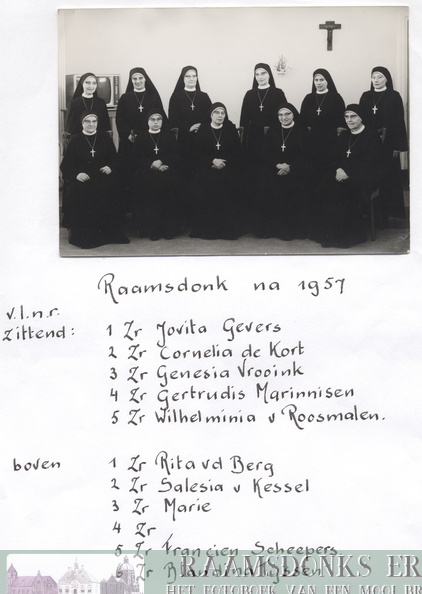 Raamsdonk na 1957
v.l.n.r.
zittend: 1 Zr Jovita Gevers
2 Zr Cornelia de Kort
3 Zr Genesia Vrooink
4 Zr Gertrudis Marinnisen
5 Zr Wilhelminia v Roosmalen.
boven 1 Zr Rita vd Berg
2 Zr Salesia v Kessel
3 Zr Marie
4 Zr
5 Zr Francien Scheepers.
6 Zr Blandina Tyssen
RAAMSDONKS ER
HET FOTOBOEK VAN EEN MOOI BR